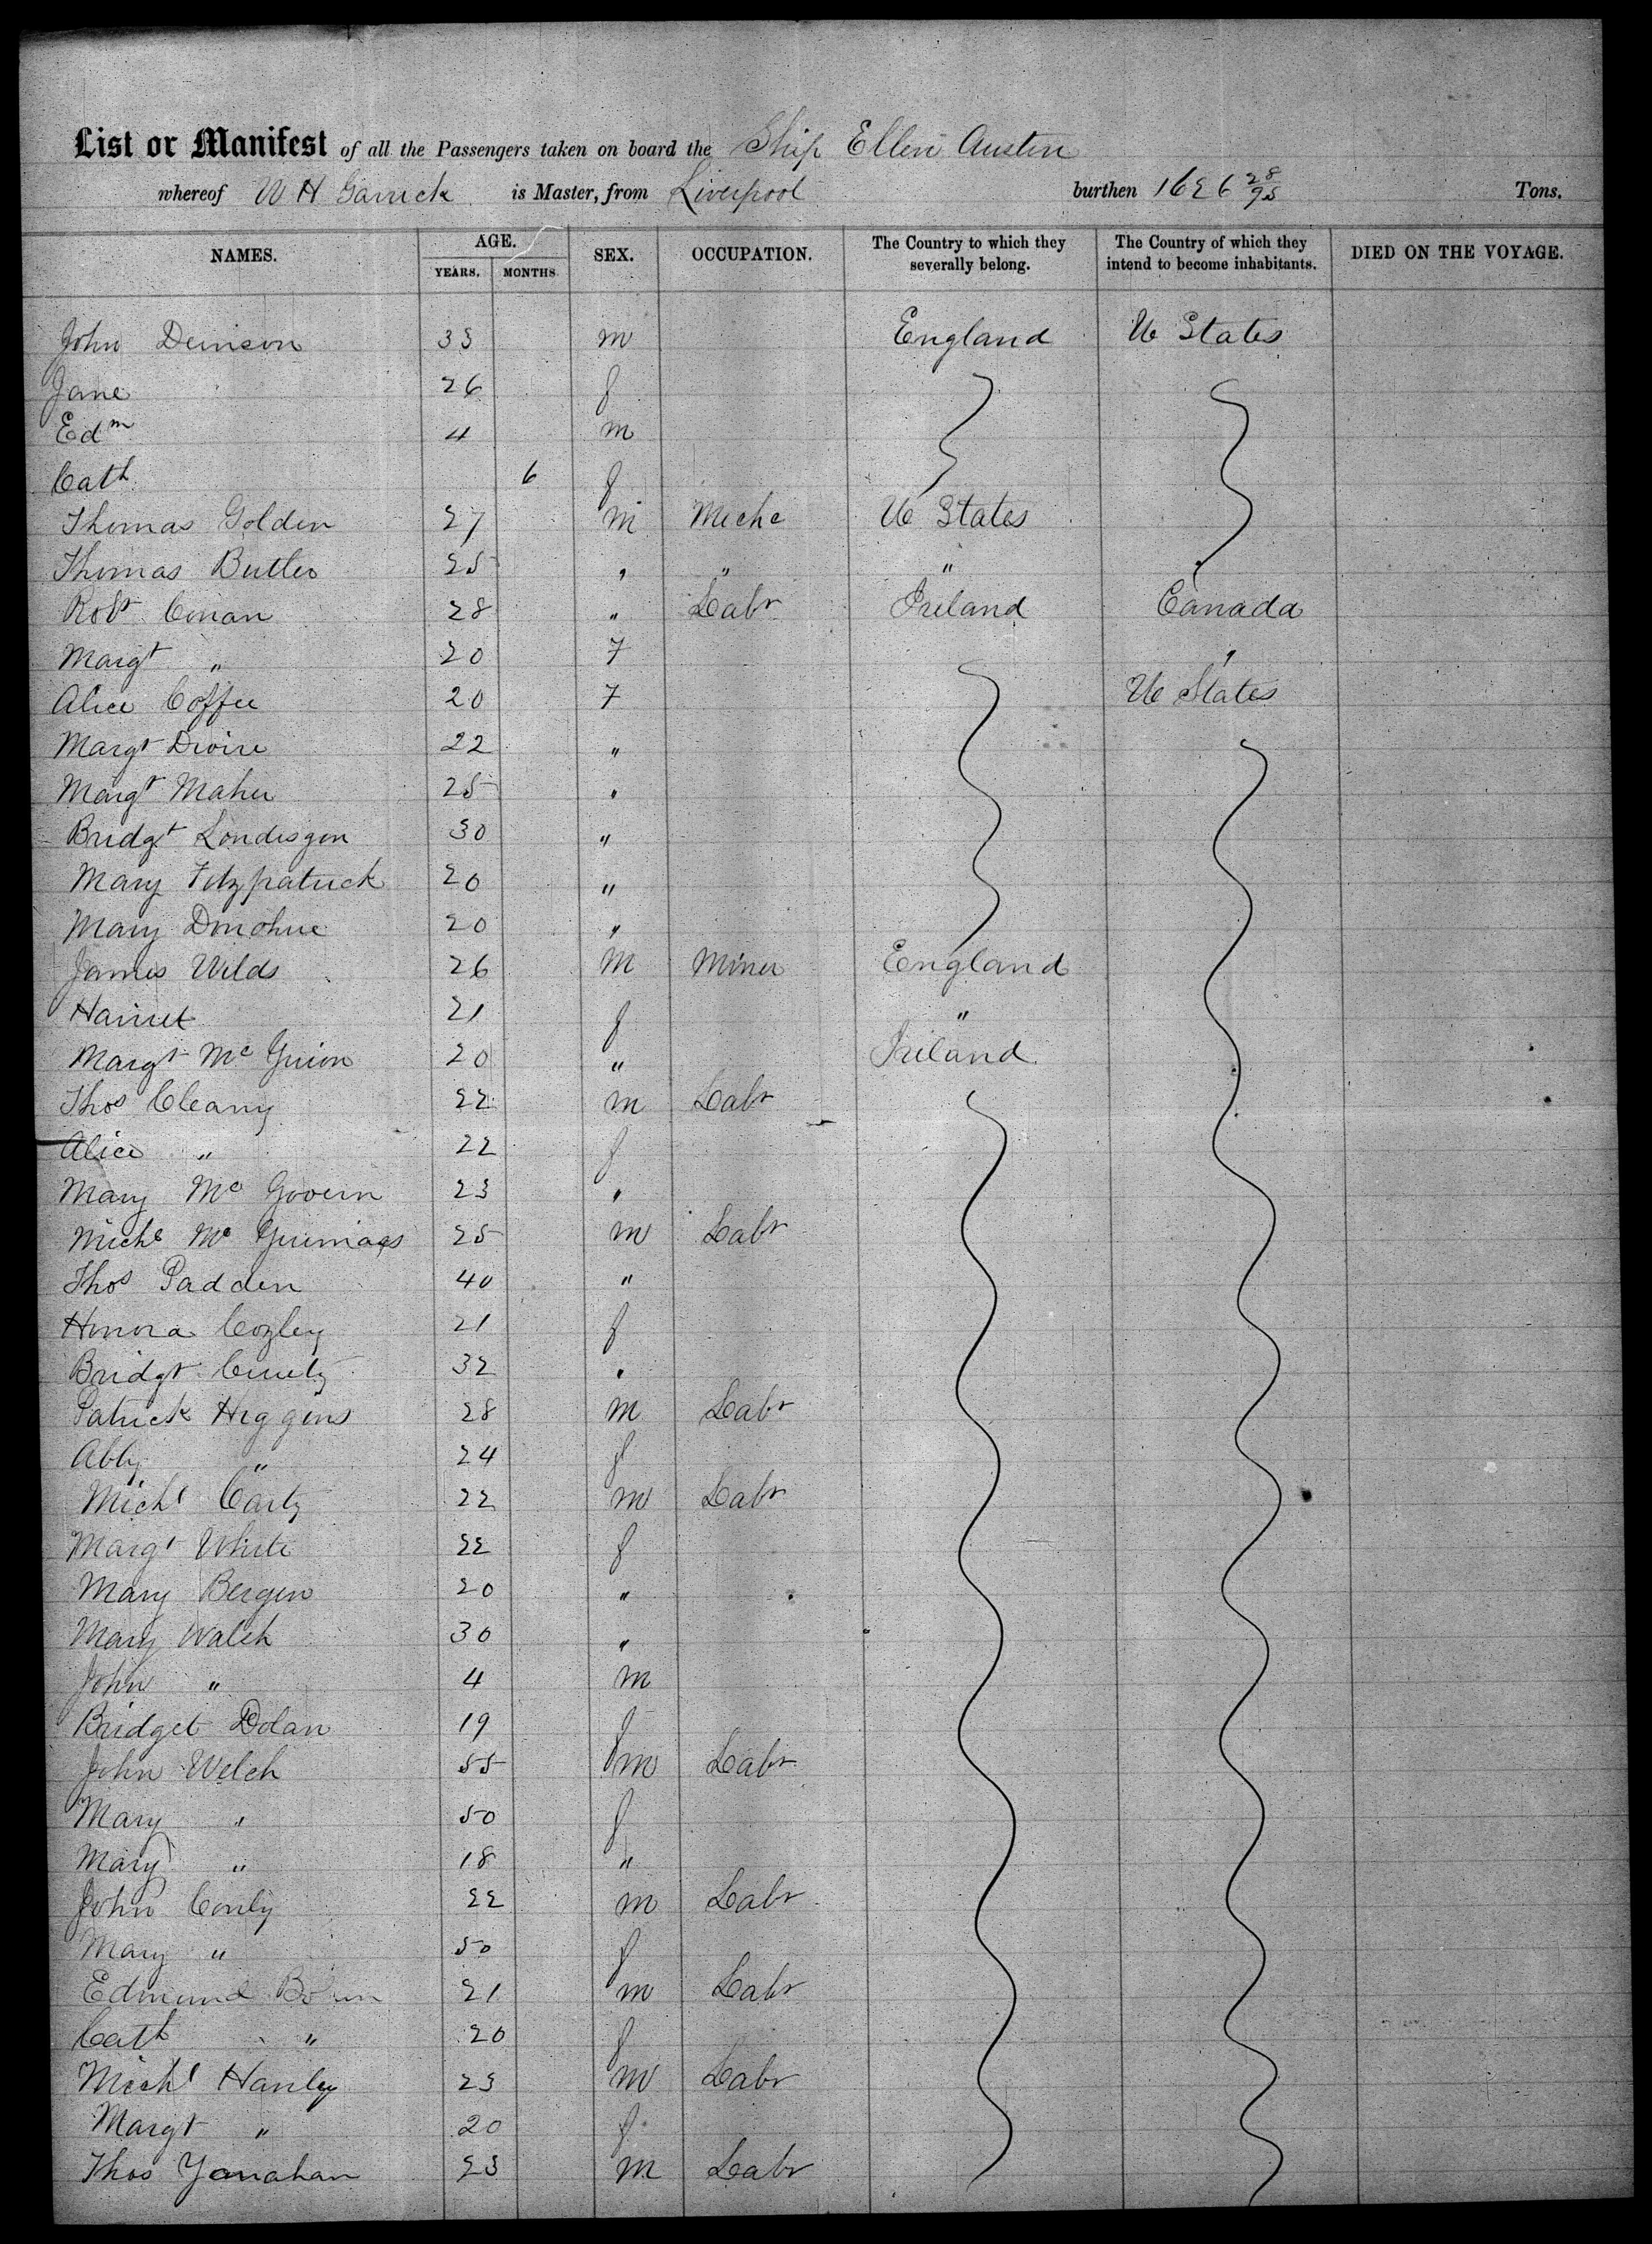 List or Manifest of all the Passengers taken on board the Ship Ellen Austin
whereof W H Garrick is Master, from Liverpool burthen 1626 28/95 Tons.
NAMES. AGE. YEARS. MONTHS SEX. OCCUPATION. The Country to which they severally belong. The Country of which they intend to become inhabitants. DIED ON THE VOYAGE.
John Denison 33 m England U States
Jane 26 f
Edm 4 m
Cath 6 f
Thomas Golden 27 m Mechc U States
Thomas Butler 25 " " "
Robt Conan 28 " Labr Ireland Canada
Margt " 20 F "
Alice Coffee 20 F U States
Margt Dwire 22 "
Margt Maher 25 "
Bridgt Londisgon 30 "
Mary Fitzpatrick 20 "
Mary Donohue 20 "
James Wilds 26 M Miner England
Harriet 21 f "
Margt Mc Guion 20 " Ireland
Thos Cleary 22 m Labr
Alice " 22 f
Mary Mc Govern 23 "
Michl Mc 25 m Labr
Thos Padden 40 "
Honora Cozley 21 f
Bridgt 32 "
Patrick Higgins 28 m Labr
Abby " 24 f
Michl Carty 22 m Labr
Margt White 22 f
Mary Bergen 20 "
Mary Walsh 30 "
John " 4 m
Bridget Dolan 19 f
John Welch 55 m Labr
Mary " 50 f
Mary " 18 "
John Conly 22 m Labr
Mary " 50 f
Edmund 21 m Labr
Cath " 20 f
Michl Hanley 23 m Labr
Margt " 20 f
Thos Yanahan 23 m Labr